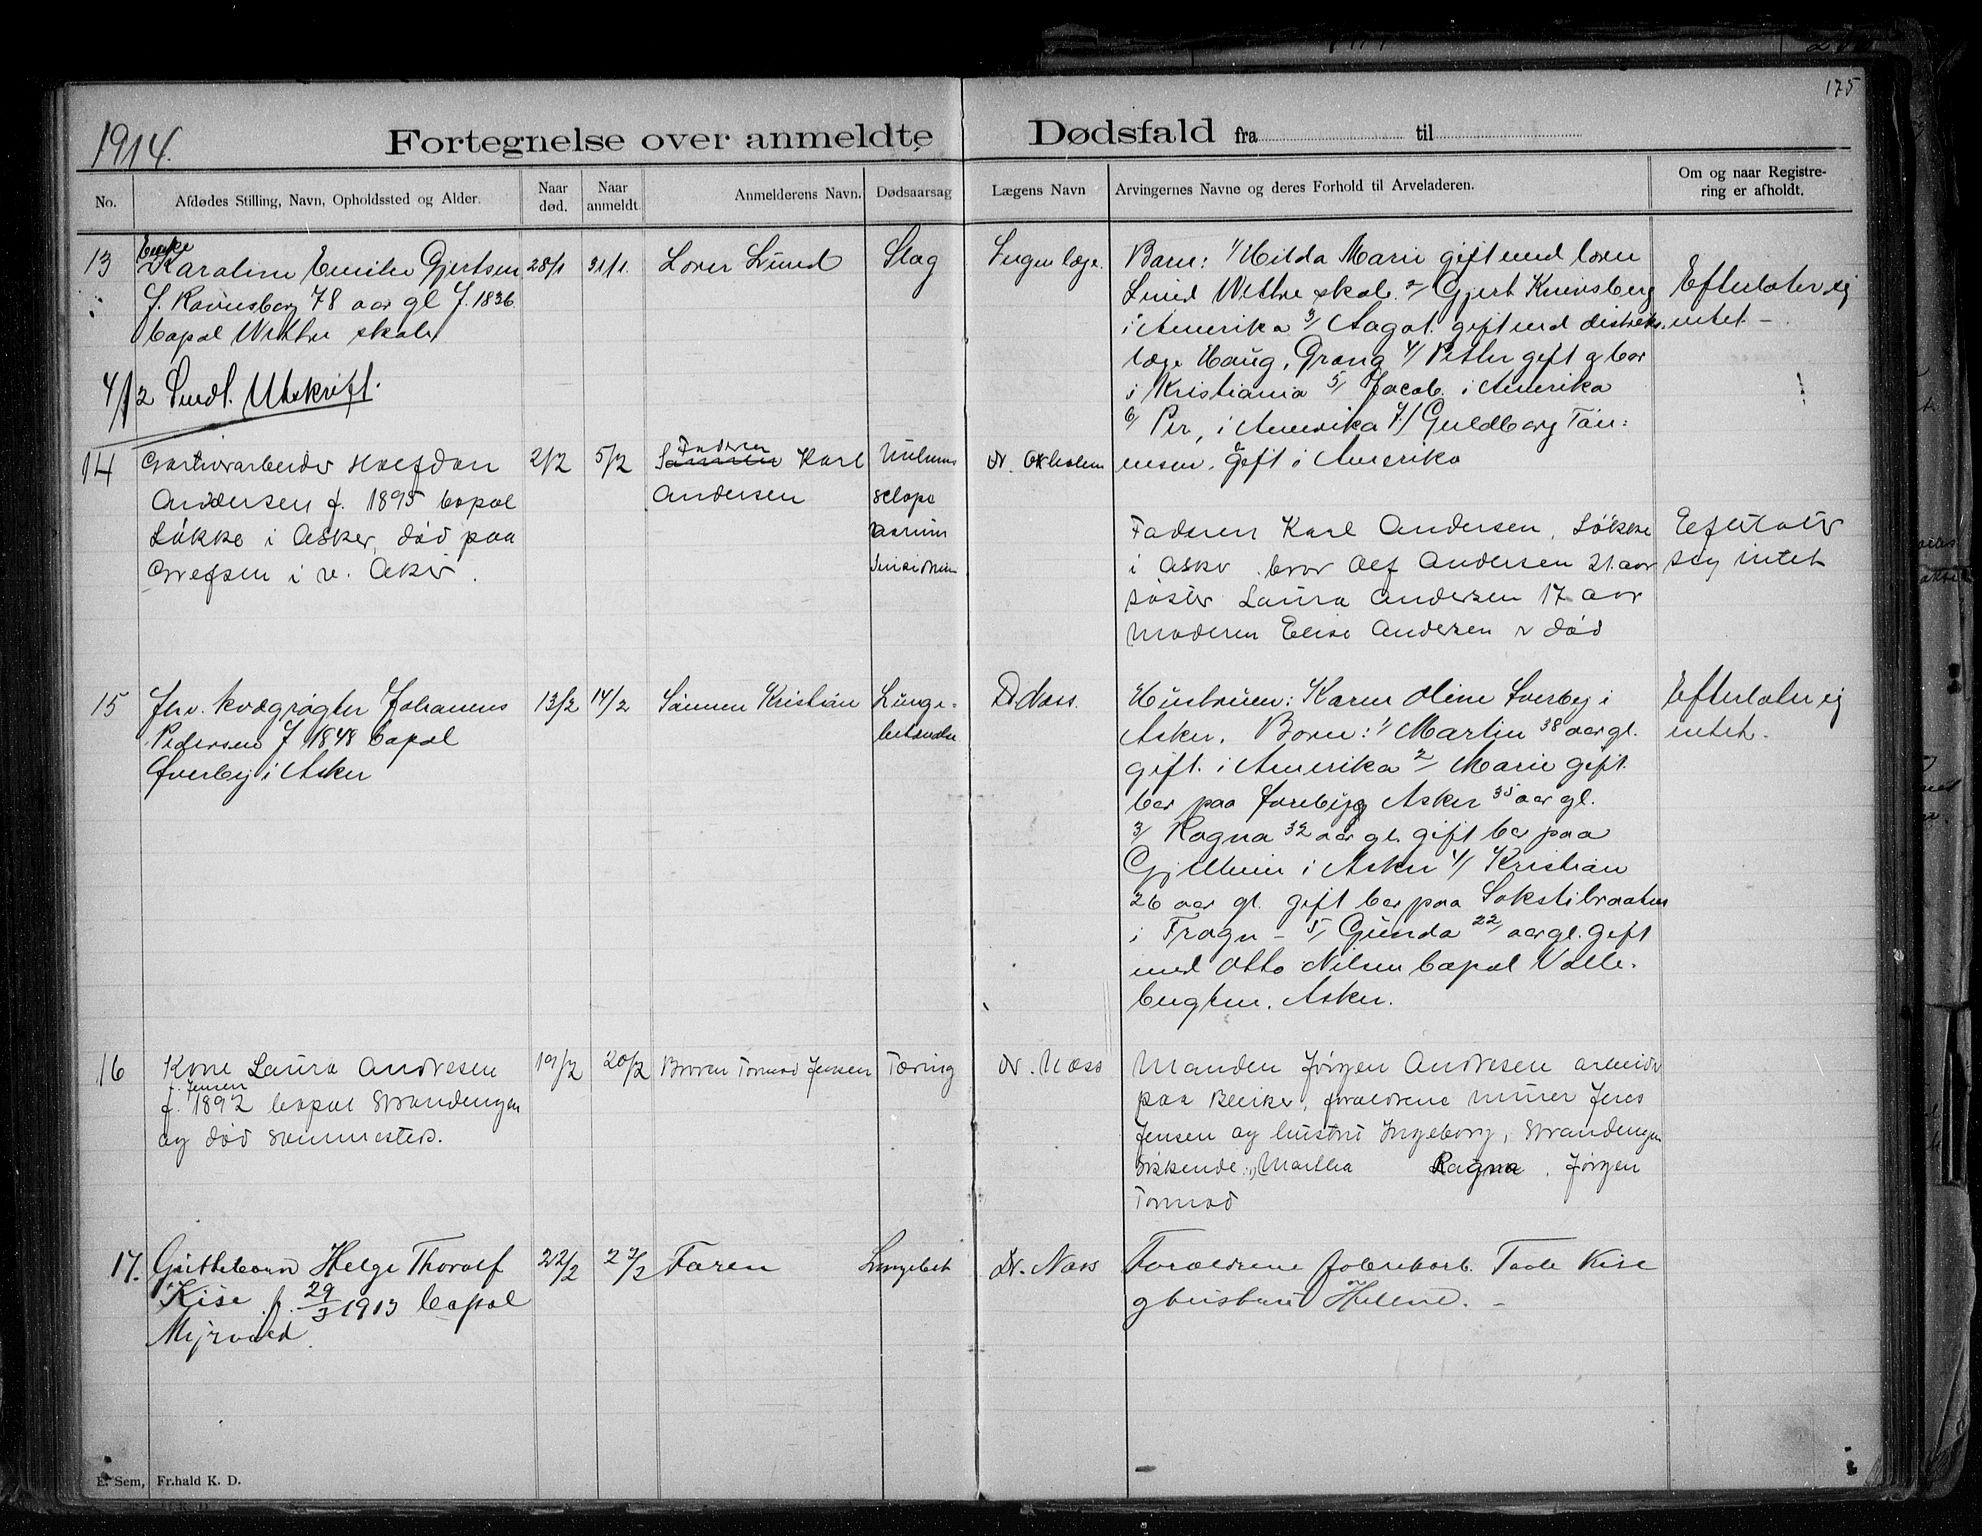 175
1914.
Fortegnelse over anmeldte Dødsfald fra til
No.
Afdødes Stilling, Navn, Opholdssted og Alder.
Naar død.
Naar anmeldt.
Anmelderens Navn.
Dødsaarsag
Lægens Navn
Arvingernes Navne og deres Forhold til Arveladeren.
Om og naar Registrering er afholdt.
13
Enke
Karoline Emilie Gjertsen
f. Ravnsborg 78 aar gl f. 1836
bopæl Wettre skole
28/1
31/1.
Lorer Lund
Slag
Ingen læge.
Barn: 1/ Hilda Marie gift med lærer
Lund Wettre skole 2/ Gjert
i Amerika 3/ Aagot. gift med distrikts.
læge Haug, Grong 4/ Petter gift o bor
i Kristiania 5/ Jacob. i Amerika
6/ Per, i Amerika 7/ Guldborg Tön:
nesen. Gift i Amerika
Efterlater sig
intet. -
4/2 Sendt. Utskrift.
14
Gartnerarbeider Halfdan
Andersen f. 1895 bopæl
Løkke i Asker, død paa
Grefsen i v. Aker.
2/2
5/2
Faderen
Sönnen Karl
Andersen
Dr. Oxholm
Faderen Karl Andersen, Løkke
i Asker. bror Olf Andersen 21. aar
søster Laura Andersen 17 aar
Moderen Elise Andersen er død
Efterlater
sig intet
15
fhv. kvægrøgter Johannes
Pedersen f 1848 bopæl
Øverby i Asker
13/2
14/2
Sönnen Kristian
Lunge-
betændelse
Dr. Næss.
Hustruen: Karen Oline Øverby i
Asker. Børn: 1/ Martin 38 aar gl.
gift. i Amerika 2/ Marie gift.
bor paa Asker 35 aar gl.
3/ Ragna 32 aar gl. gift bor paa
Gjellum i Asker 4/ Kristian
26 aar gl. gift bor paa
i Frogn - 5/ Gunda 22 aar gl. gift
med Otto Nilsen bopæl Volle-
bugten. Asker.
Efterlater sig
intet.
16
Kone Laura Andresen
f. Jensen
f. 1892 bopæl Strandengen
og død sammesteds.
19/2
20/2
Broren Tormod Jensen
Tæring
Dr. Næss
Manden Jørgen Andresen arbeider
paa Blaker, forældrene murer Jens
Jensen og hustru Ingeborg, Strandengen
Søskende: Martha Ragna. Jørgen
Tormod
17.
Guttebarn Helge Thorolf
Kise. f. 29/3 1913 bopæl
Myrvold.
22/2
27/2
Faren
Lungebet
Dr. Næss
Forældrene fabrikarb. Kise
og hustru Helene. -
E. Sem, Fr.hald K. D.